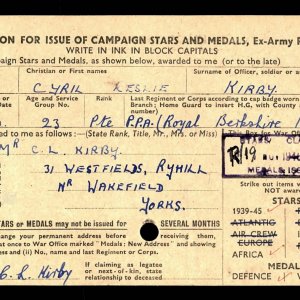 ON FOR ISSUE OF CAMPAIGN STARS AND MEDALS, Ex-Army
WRITE IN INK IN BLOCK CAPITALS
paign Stars and Medals, as shown below, awarded to me (or to the late)
Christian or First names Surname of Officer, soldier or
CYRIL LESLIE KIRBY.
Age and Service Group No. Rank Last Regiment or Corps according to cap badge worn
Branch; Home Guard to insert H.G. with County
23 Pte P.P.A. (Royal Berkshire
forwarded to:— (State Rank, Title, Mr., Mrs. or Miss) This Box for War Off
MR C. L. KIRBY.
31 WESTFIELDS, RYHILL
NR WAKEFIELD
YORKS.
MEDALS
Strike out items
NOT awarded
STARS
STARS or MEDALS may not be issued for SEVERAL MONTHS
1939-45
ATLANTIC
AIR CREW
EUROPE
AFRICA
once to War Office marked " Medals: New Address " and showing
and (ii) Name, last Regiment or Corps.
C. L. Kirby
If claiming as legatee
or next-of-kin, state
relationship to deceased
MEDALS
DEFENCE